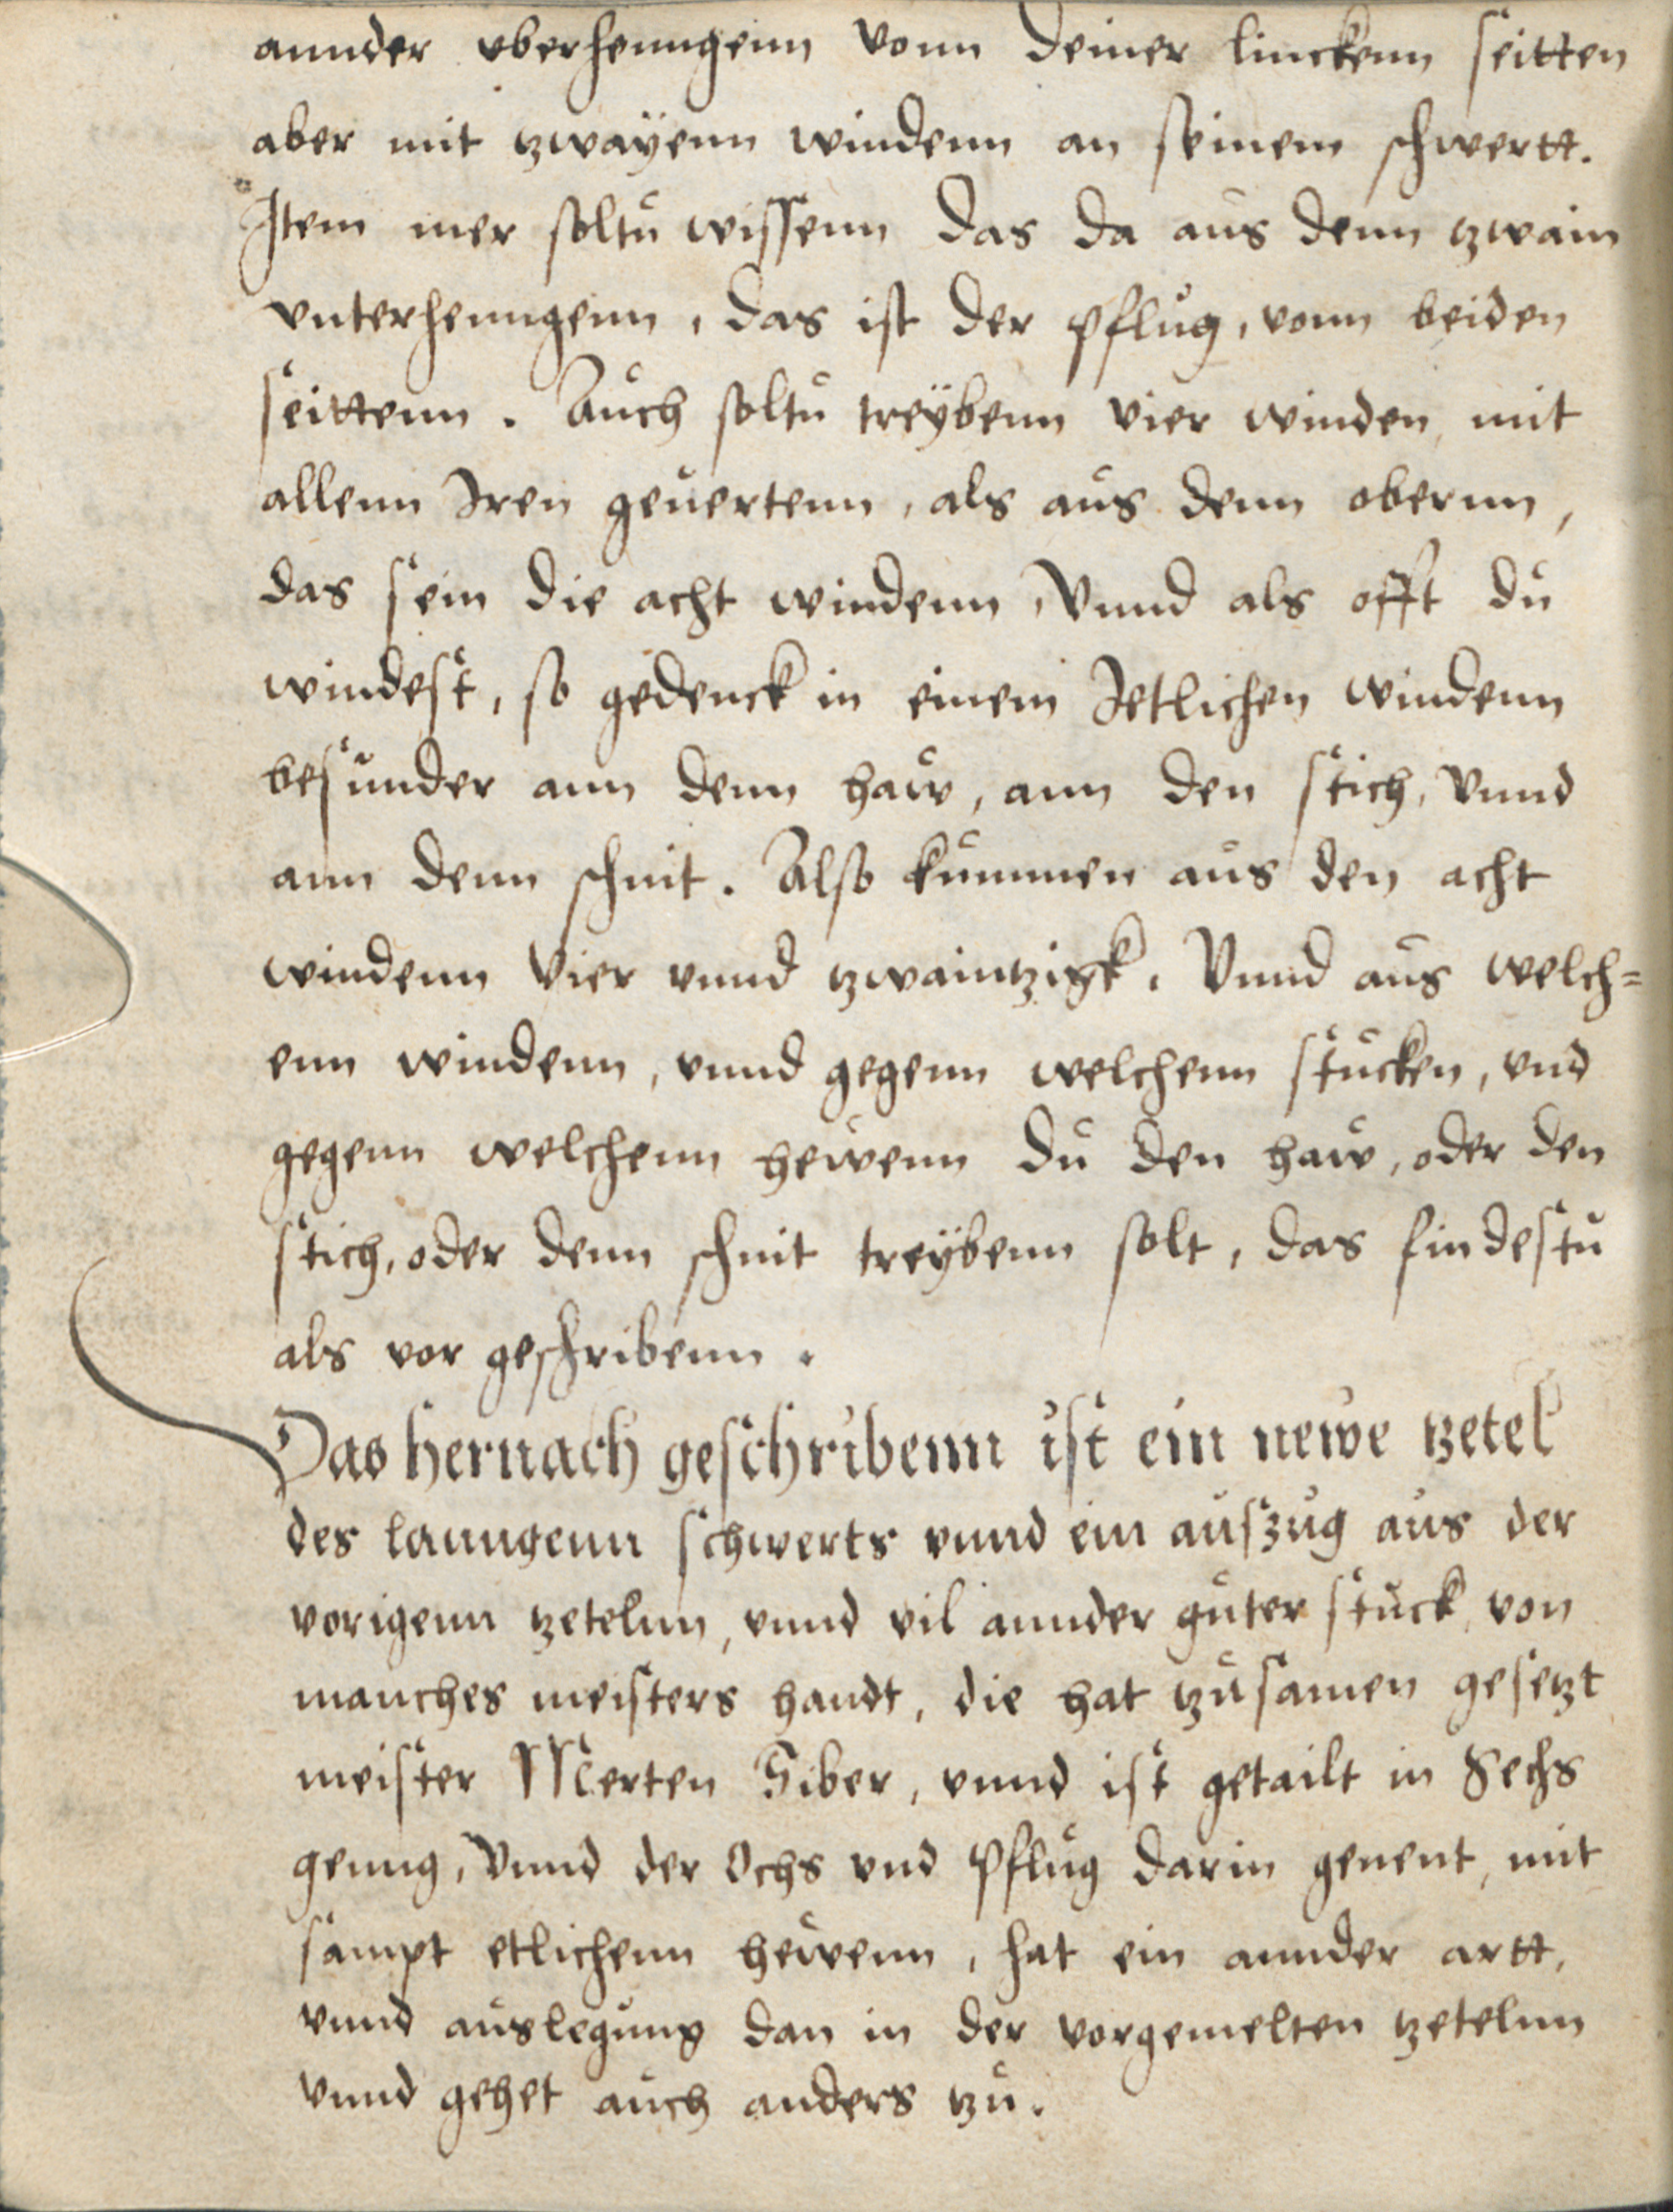 annder vberhenngenn vonn deiner linckenn seitten
aber mit tzwaÿenn windenn an seinem schwertt.
Item mer soltu wissenn das da aus denn tzwain
vnterhenngenn, das ist der pflug, vonn beiden
seittenn. Auch soltu treÿbenn vier winden, mit
allenn Iren geuertenn, als aus denn obernn,
das sein die acht windenn, Vnnd als offt du
windest, so gedenck in einem Ietlichen windenn
besunder ann denn haw, ann den stich, Vnnd
ann denn schnit. Also kummen aus den acht
windenn vier vnnd tzwaintzigk. Vnnd aus welch=
enn windenn, vnnd gegenn welchenn stucken, vnd
gegenn welchenn hewenn du den haw, oder den
stich, oder denn schnit treÿbenn solt, das findestu
als vor geschribenn.
Das hernach geschribenn ist ein newe tzetel
des lanngenn schwerts vnnd ein auszug aus der
vorigenn tzetelnn, vnnd vil annder guter stuck, von
manches meisters handt, die hat tzusamen gesetzt
meister Merten Siber, vnnd ist getailt in Sechs
genng, Vnnd der Ochs vnd Pflug darin genent, mit
sampt etlichenn hewenn, hat ein annder artt,
vnnd auslegung dan in der vorgemelten tzetelnn
vnnd gehet auch anders tzu.